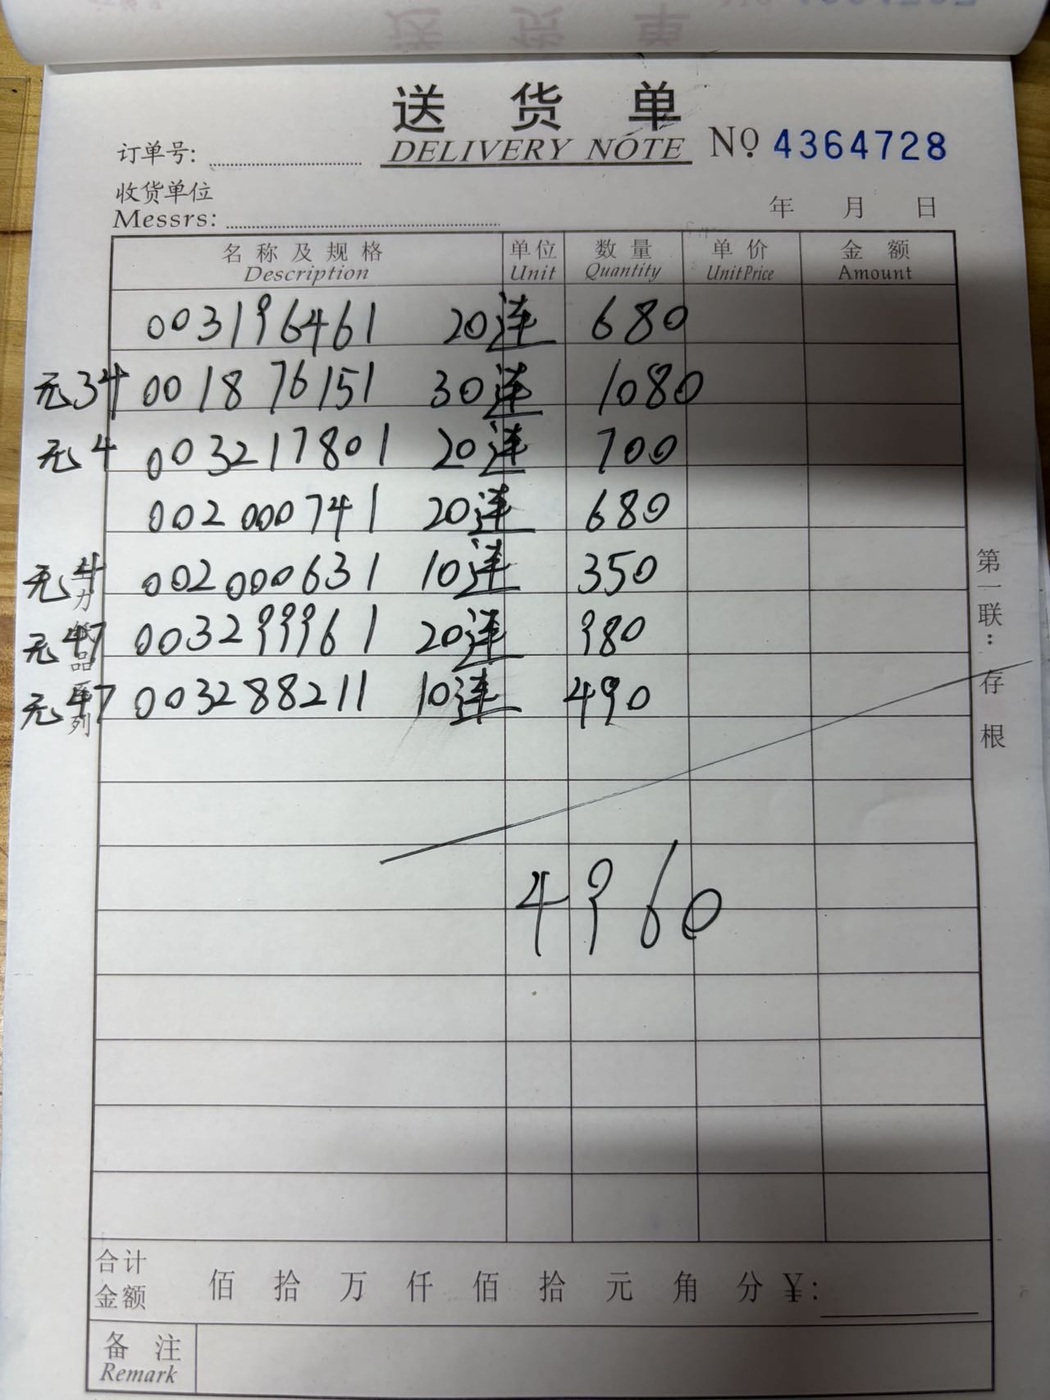 送货单
DELIVERY NOTE
No 4364728
订单号:
收货单位
Messrs:
年 月 日
名称及规格 单位 数量 单价 金额
Description Unit Quantity UnitPrice Amount
003196461 20连 680
无34 001876151 30连 1080
无4 003217801 20连 700
002000741 20连 680
无4 002000631 10连 350
无47 003299961 20连 980
无47 003288211 10连 490
4960
第一联:存根
合计
金额 佰 拾 万 仟 佰 拾 元 角 分 ¥:
备注
Remark